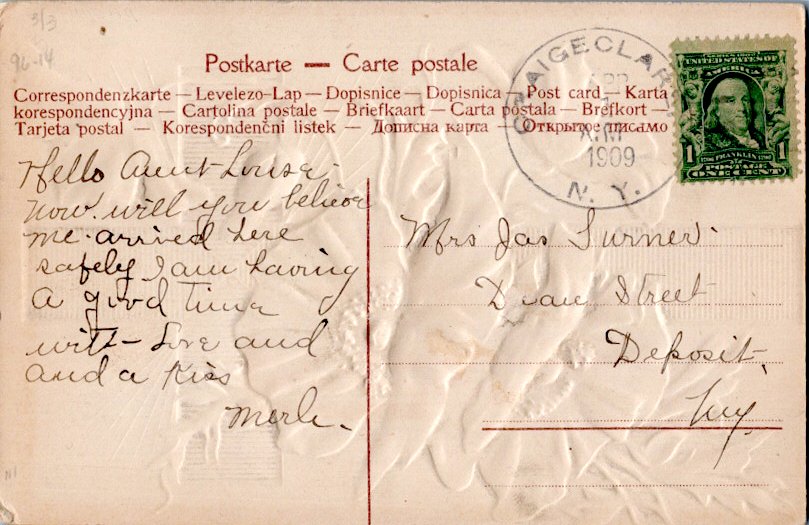 3/3
96-14
Postkarte — Carte postale
Correspondenzkarte — Levelezo-Lap — Dopisnice — Dopisnica — Post card — Karta
korespondencyjna — Cartolina postale — Briefkaart — Carta postala — Brefkort —
Tarjeta postal — Korespondenčni listek — Дописна карта — Открытое письмо
CRAIGECLARE
APR
A.M
1909
N. Y.
SERIES 1902
UNITED STATES OF
AMERICA
FRANKLIN
1 1
POSTAGE
ONE CENT
Hello Aunt Louise-
now will you believe
me. arrived here
safely I am having
a good time
with - Love and
and a Kiss
Merle.
Mrs Jas Turner.
Dean Street
Deposit,
N.Y.